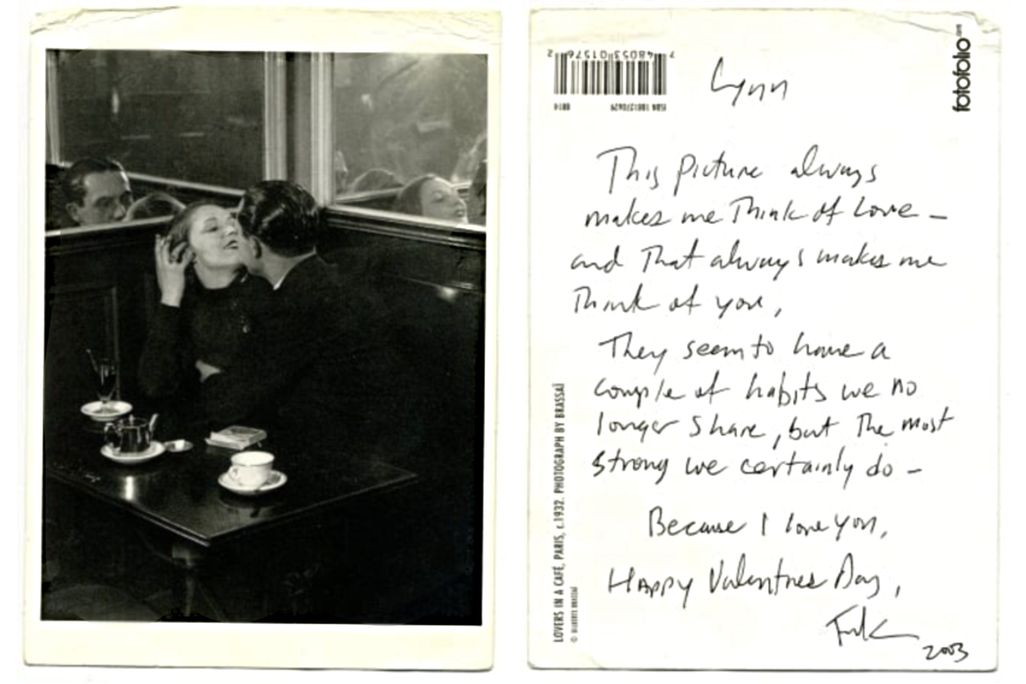 7 48053 01576 2
0814
ISBN 1881270629
fotofolio
Lynn
This picture always
makes me Think of Love –
and That always makes me
Think of you,
They seem to have a
couple of habits we no
longer share, but The most
strong we certainly do –
Because I love you,
Happy Valentines Day,
2003
LOVERS IN A CAFÉ, PARIS, c.1932. PHOTOGRAPH BY BRASSAÏ
© GILBERTE BRASSAÏ